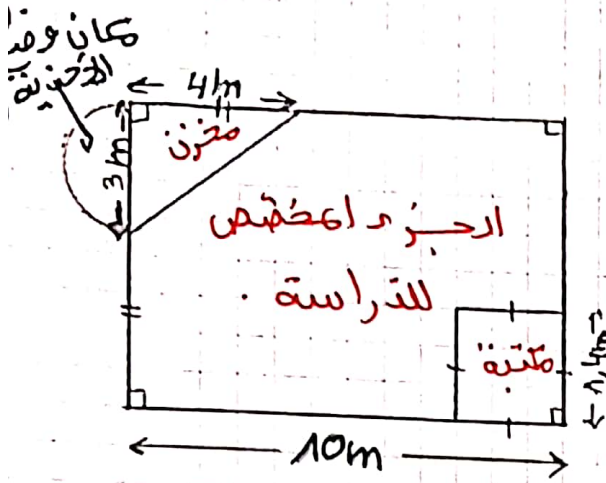 مكان وضع
الأحذية
4m
مخزن
3m
الجزء المخصص
للدراسة.
مكتبة
1,4m
10m